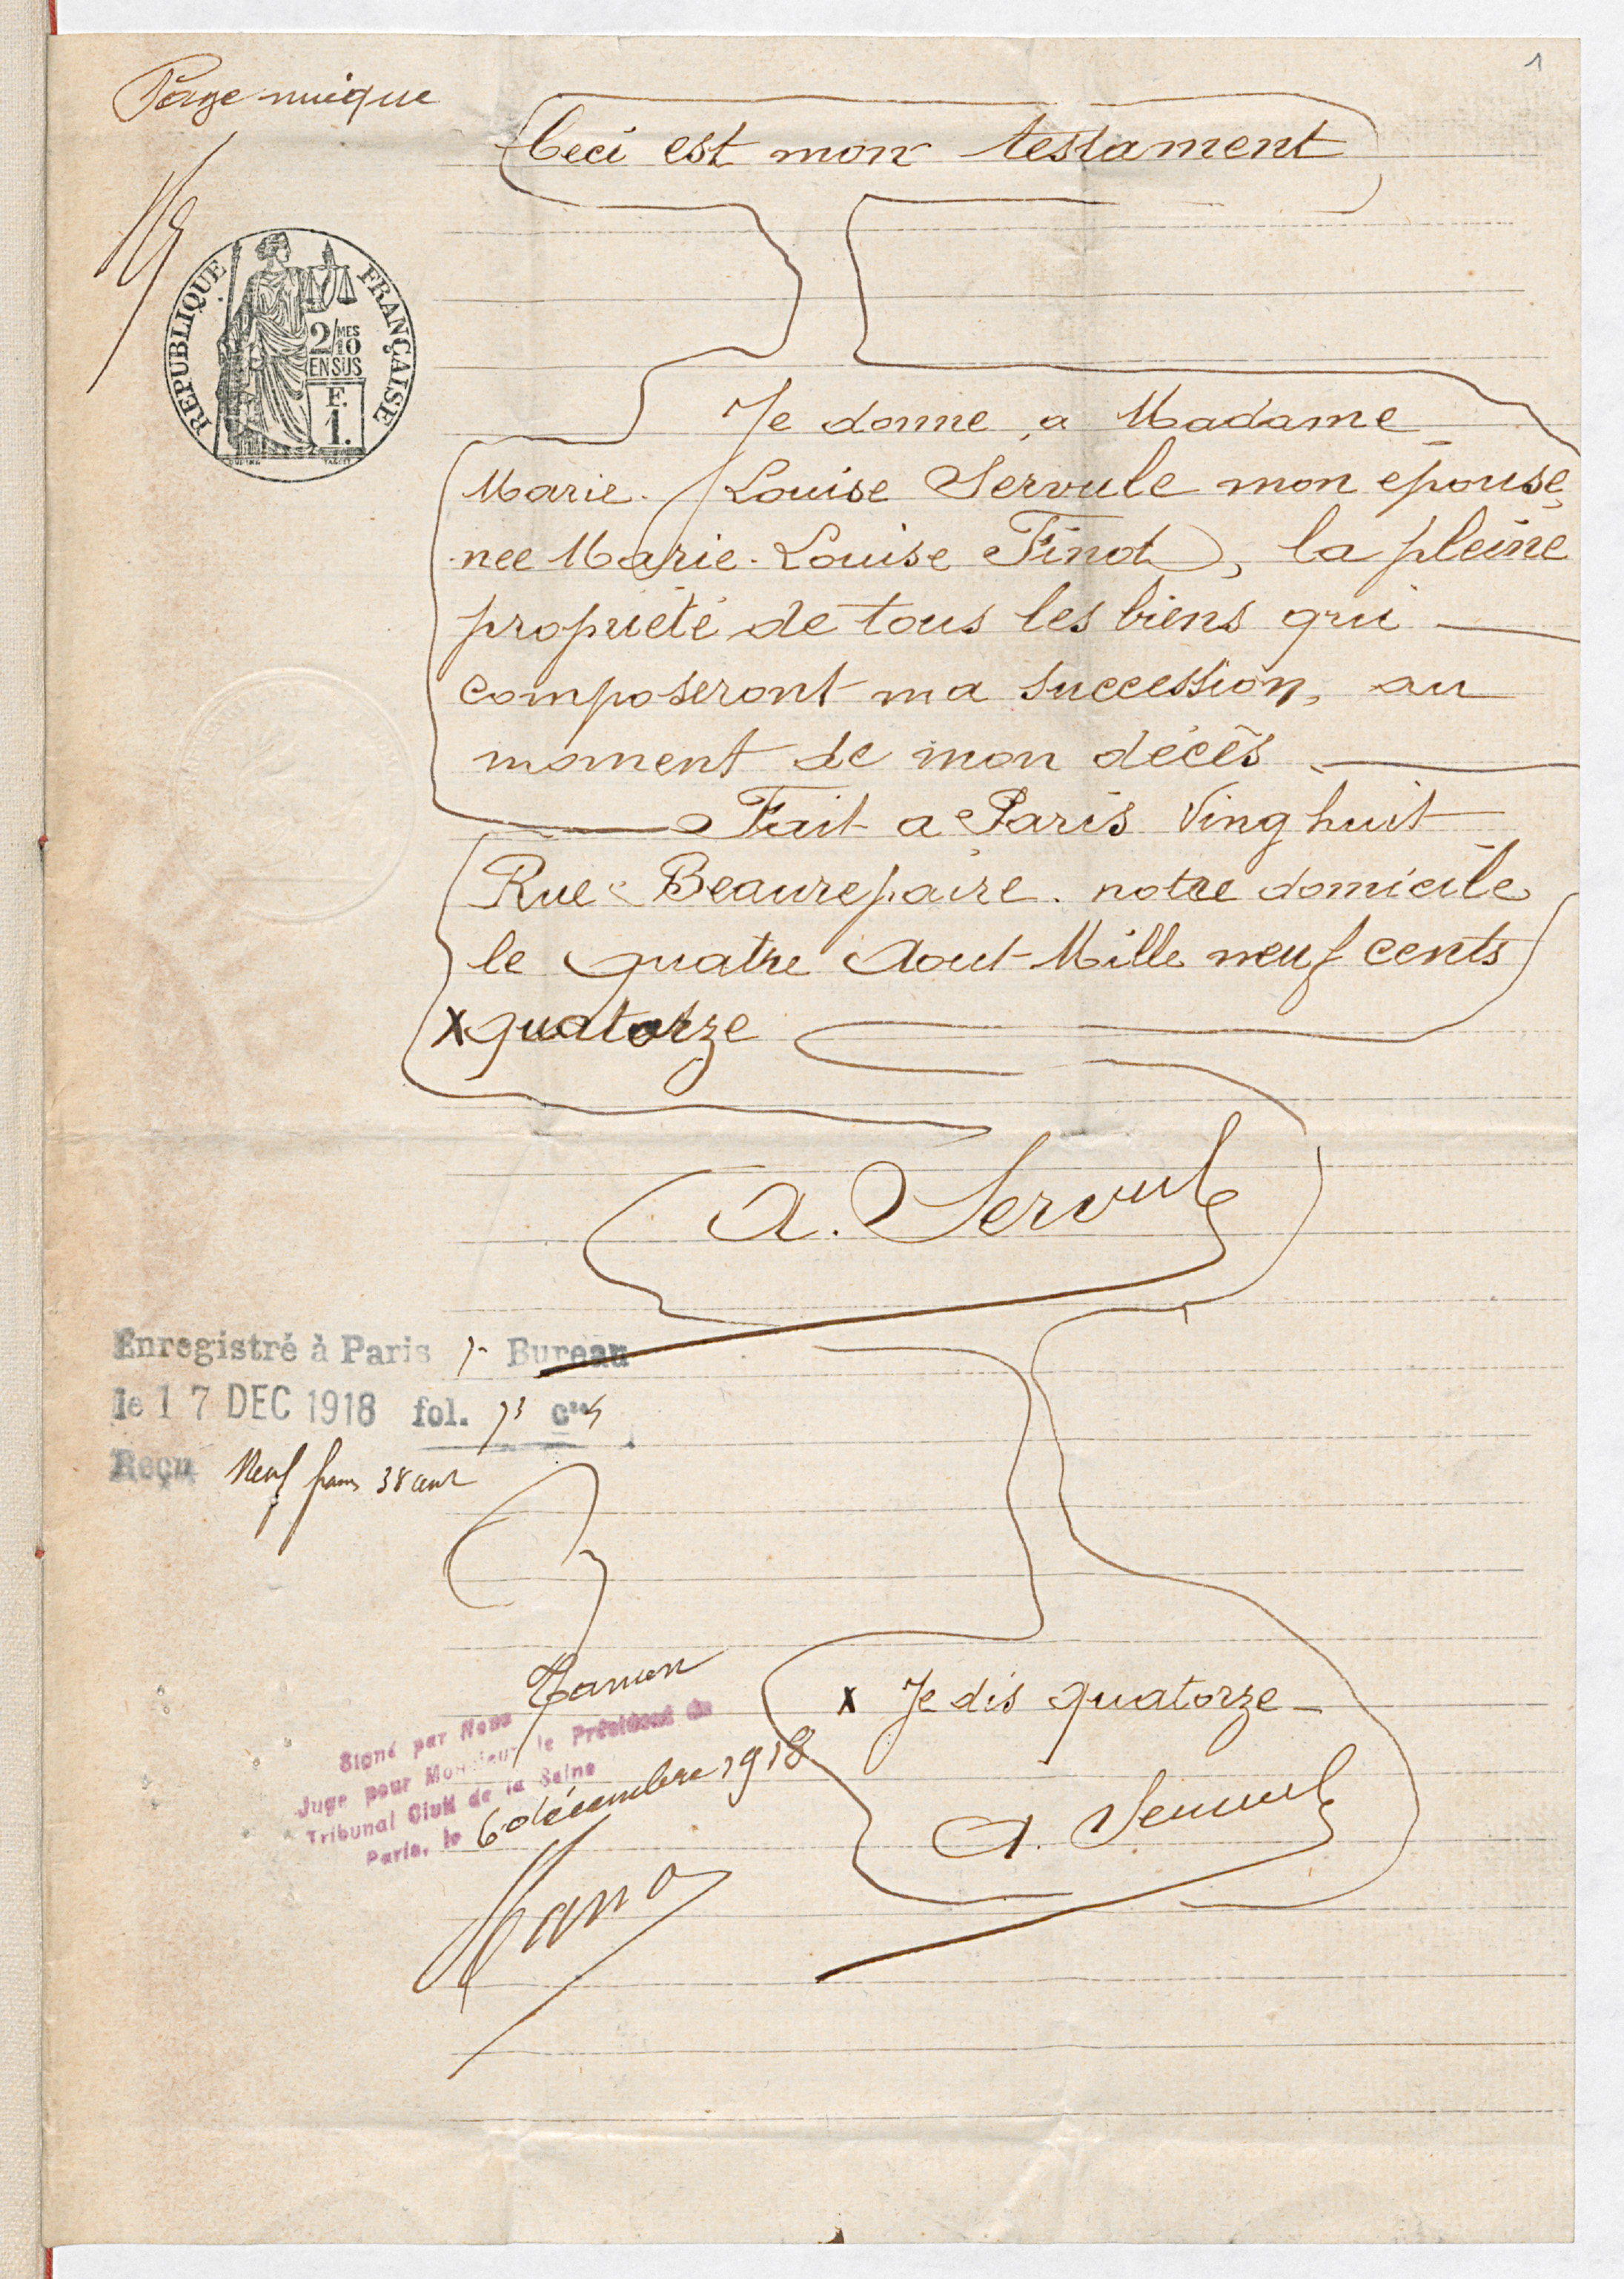 1
Page unique
Ceci est mon testament
REPUBLIQUE FRANÇAISE
2/10 MES
EN SUS
F.
1.
Je donne a Madame
Marie-Louise Servule mon epouse,
nee Marie-Louise Finot, la pleine
propriété de tous les biens qui
composeront ma succession, au
moment de mon décès
Fait a Paris Ving huit
Rue Beaurepaire. notre domicile
le quatre Aout Mille neuf cents
x quatorze
A. Servule
Enregistré à Paris Bureau
le 17 DEC 1918 fol. 73 Cse
Reçu Neuf francs 38 cent
x Je dis quatorze
A. Servule
Signé par Nous
Juge pour Monsieur le Président du
Tribunal Civil de la Seine
Paris, le 6 décembre 1918